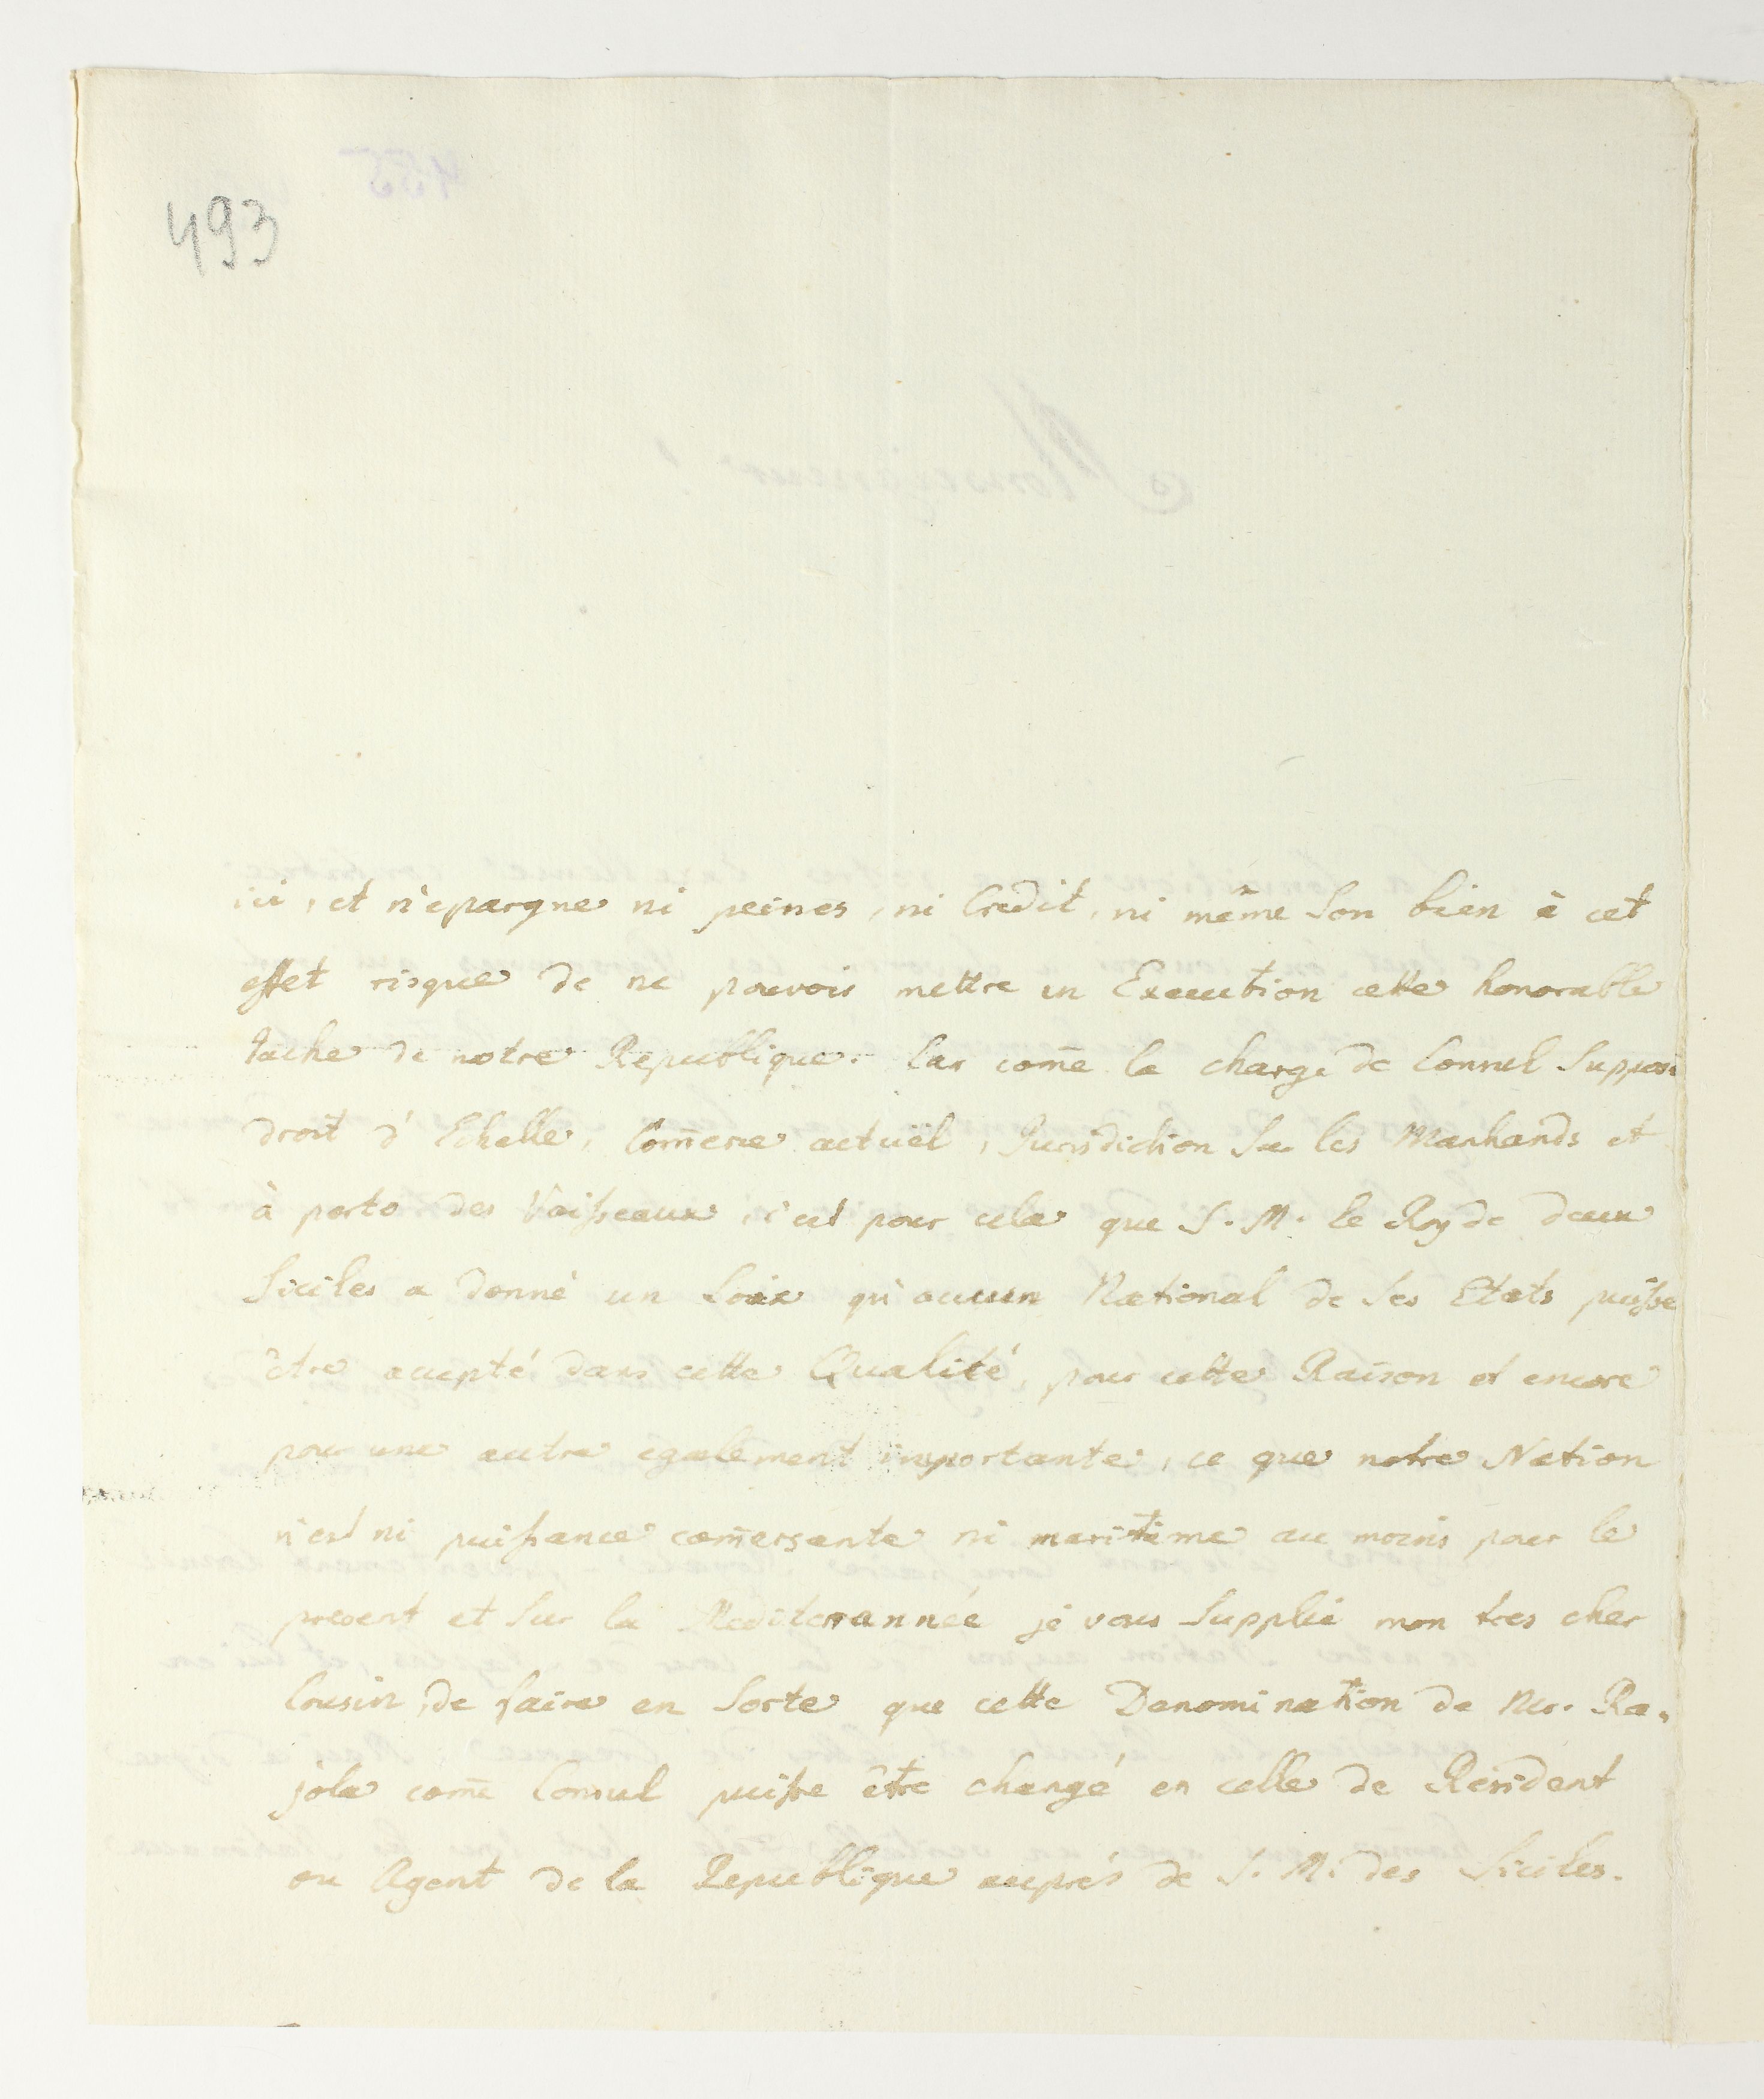 493
ici, et n'epargne ni peines, ni Credit, ni même Son bien à cet
effet risque de ne pouvoir mettre en Execution cette honorable
Tache de notre Republique. Car com̄e la charge de Consul Suppose
droit d'Echelle, Com̄erce actuël, Jurisdiction Sur les Marchands et
à porto des Vaisseaux, c'est pour cela que S. M. le Roy de deux
Siciles a donné un Loix qu'aucun National de Ses Etats puisse
être accepté dans cette Qualité, pour cette Raison et encore
pour une autre egalement importante, ce que notre Nation
n'est ni puissance com̄ersante ni maritime au moins pour le
present et Sur la Mediterrannée je vous Supplie mon tres cher
Cousin, de faire en Sorte que cette Denomination de Mr. Ra-
jola com̄e Consul puisse être changé en celle de Résident
ou Agent de la Republique auprés de S. M. des Siciles.